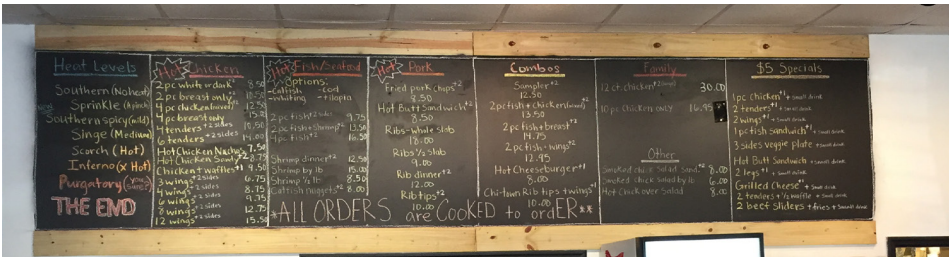 Heat Levels
Southern (No heat)
Sprinkle (A pinch)
Southern spicy (mild)
Singe (Medium)
Scorch (Hot)
Inferno (X Hot)
Purgatory
THE END
Hot Chicken
2 pc white or dark+2 8.50
2 pc breast only+2 10.50
4 pc chicken (mixed) 12.50
4 pc breast only
4 tenders+2 sides 10.50
6 tenders+2 sides 14.00
Hot Chicken Nachos 7.50
Hot Chicken Sandy+2 8.75
Chicken + waffles+1 9.50
3 wings+2 sides 6.75
4 wings+2 sides 8.75
6 wings+2 sides 9.75
8 wings+2 sides 12.75
12 wings+2 sides 15.50
Hot Fish/Seafood
Options:
-Catfish -Cod
-whiting -tilapia
2 pc fish+2 sides 9.75
2 pc fish+shrimp+2 13.50
4 pc fish+2 16.50
Shrimp dinner+2 12.50
Shrimp by lb 15.00
Shrimp 1/2 lb 8.50
Catfish nuggets+2 8.00
Hot Pork
Fried pork chops+2
12.50
Hot Butt Sandwich+2
8.50
Ribs-whole slab
18.00
Ribs 1/2 slab
9.00
Rib dinner+2
12.00
Rib tips+2
10.00
Combos
Sampler+2
12.50
2 pc fish + Chicken (mixed)+2
13.50
2 pc fish + breast+2
14.75
2 pc fish + wings+2
12.95
Hot Cheeseburger+1
8.00
Chi-town Rib tips + wings+1
10.00
Family
12 ct chicken 30.00
10 pc chicken only 16.95
Other
Smoked chick salad sand.+2 8.00
Smoked chick salad by lb 6.00
Hot Chick over Salad 8.00
$5 Specials
1 pc Chicken+1 + small drink
2 tenders+1 + small drink
2 wings+1 + small drink
1 pc fish Sandwich+1 + small drink
3 sides veggie plate + small drink
Hot Butt Sandwich + small drink
2 legs+1 + small drink
Grilled Cheese+1 + small drink
2 tenders + 1/2 waffle + small drink
2 beef Sliders + fries + small drink
*ALL ORDERS are COOKED to ordER**